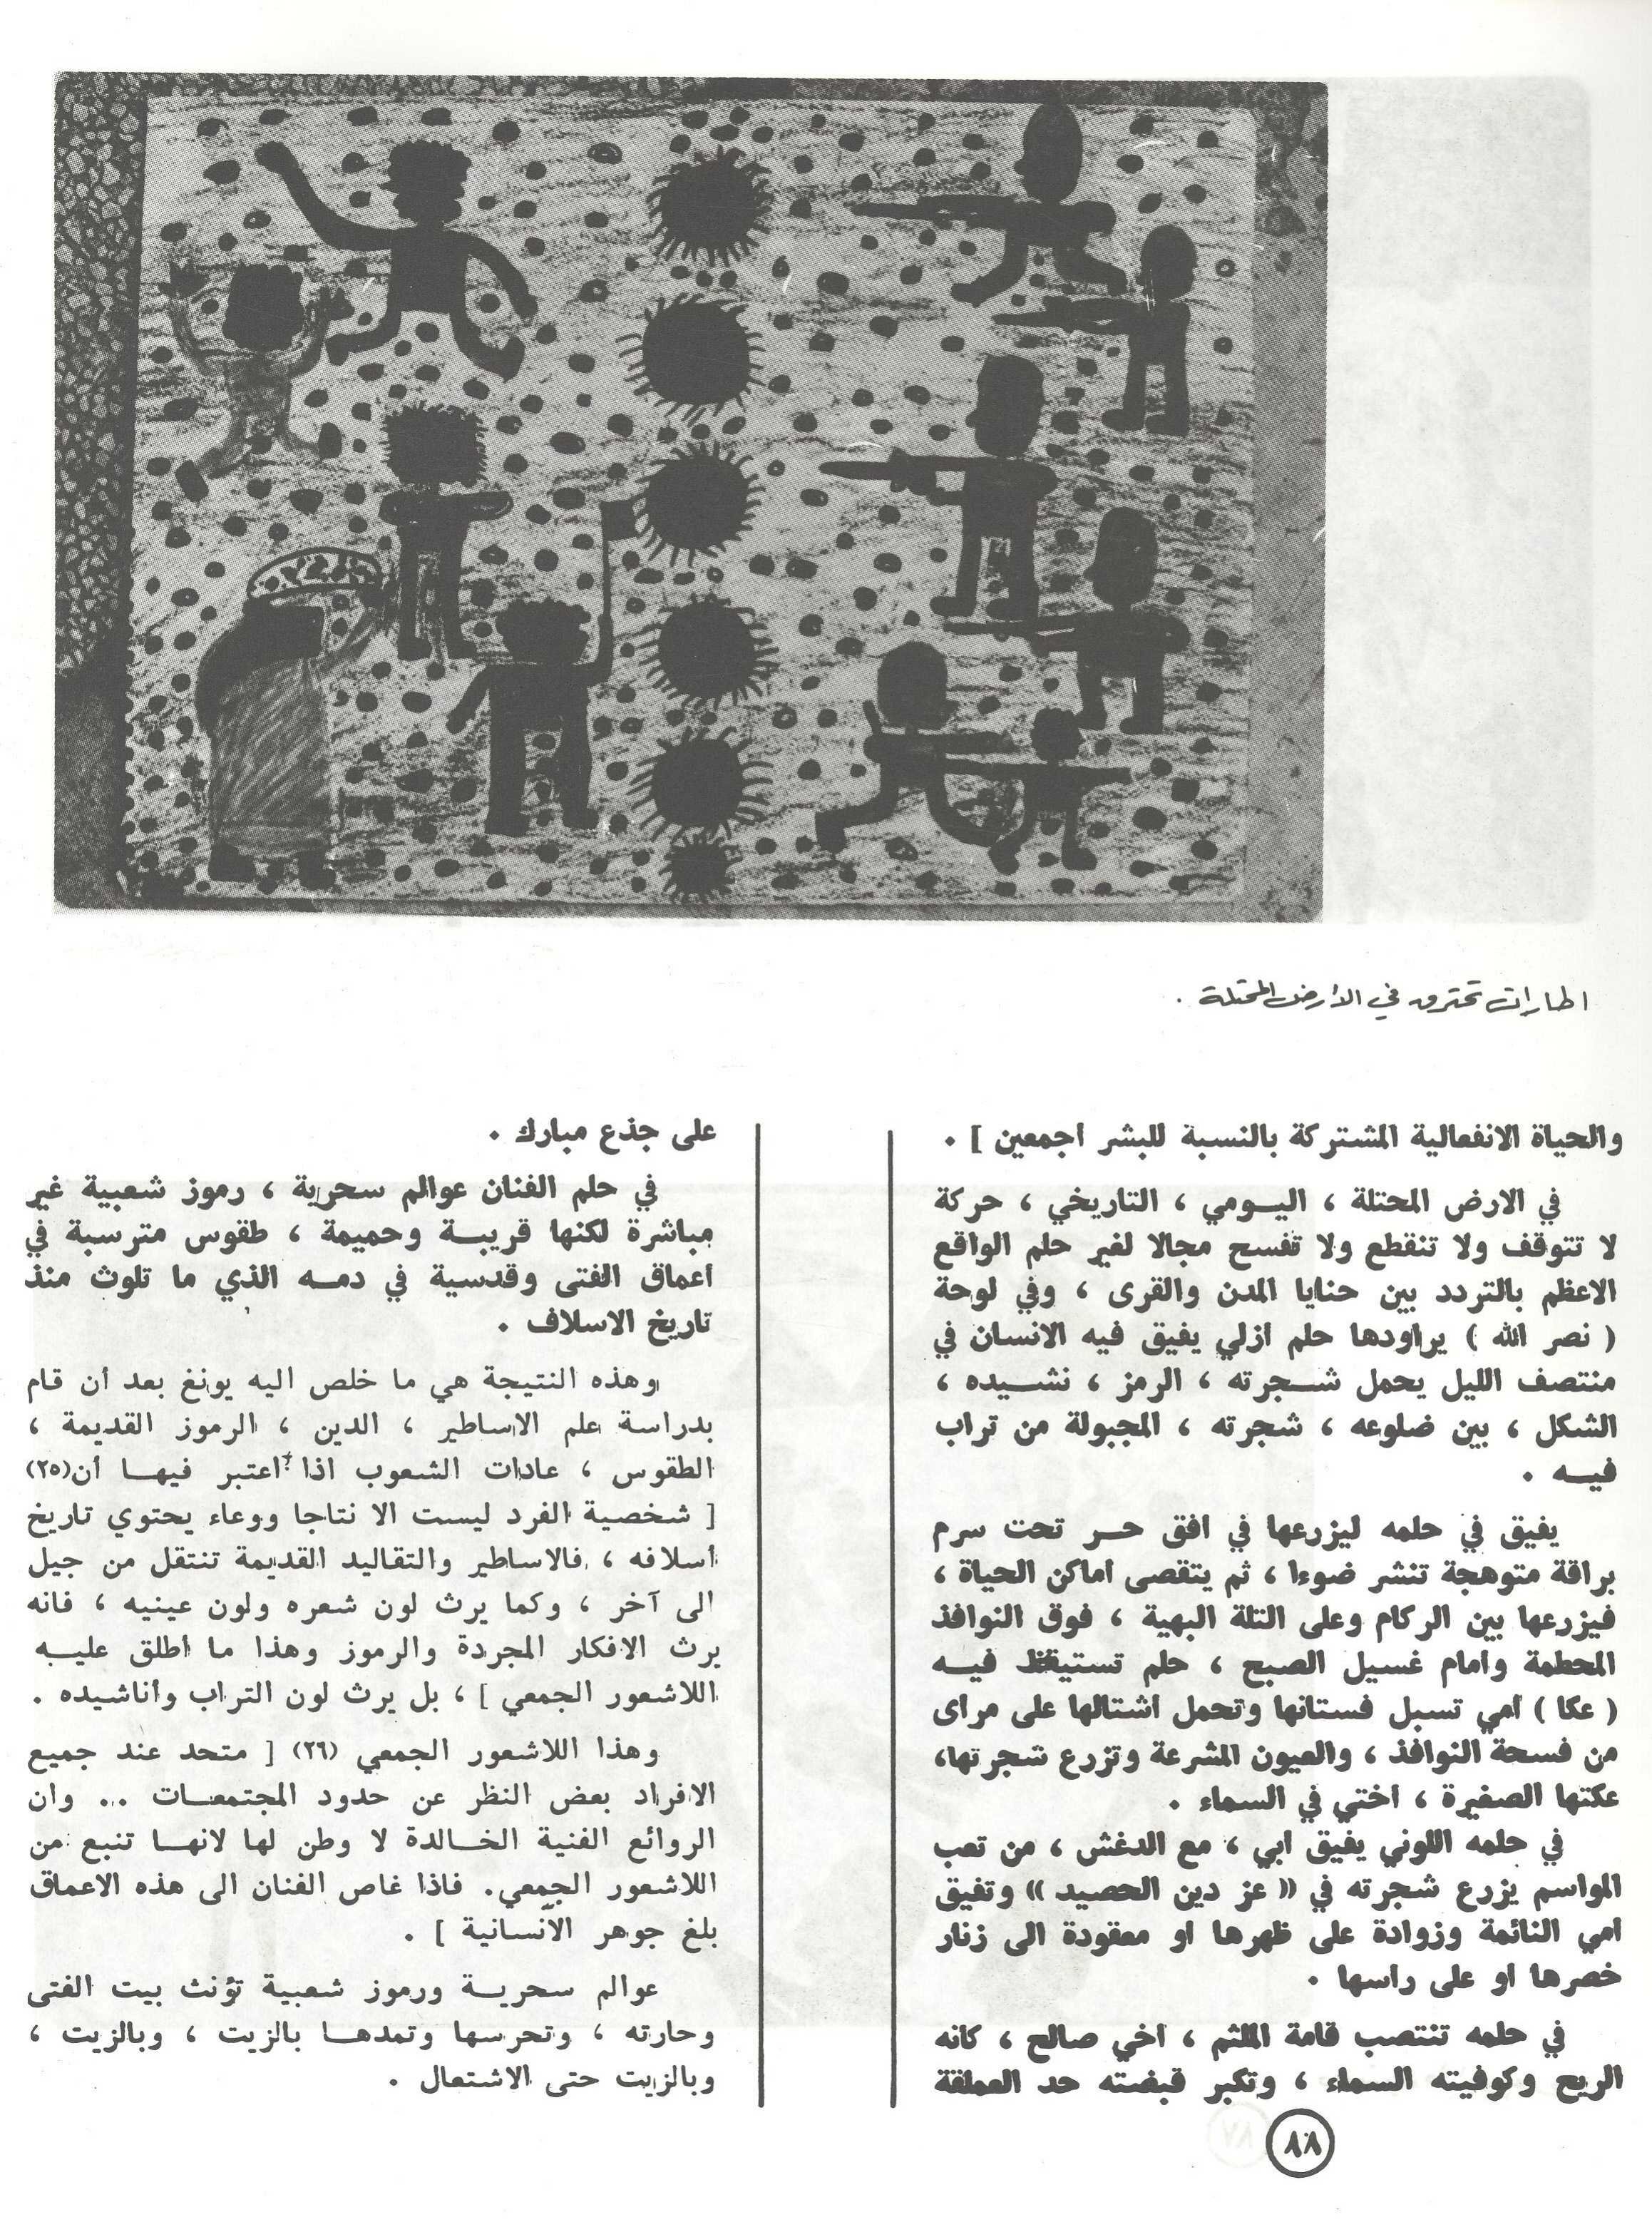 اطارات تحترق في الأرض المحتلة .
والحياة الانفعالية المشتركة بالنسبة للبشر أجمعين ] .
في الارض المحتلة ، اليومي ، التاريخي ، حركة
لا تتوقف ولا تنقطع ولا تفسح مجالا لغير حلم الواقع
الاعظم بالتردد بين حنايا المدن والقرى ، وفي لوحة
( نصر الله ) يراودها حلم أزلي يفيق فيه الانسان في
منتصف الليل يحمل شجرته ، الرمز ، نشيده ،
الشكل ، بين ضلوعه ، شجرته ، المجبولة من تراب
فيه .
يفيق في حلمه ليزرعها في أفق حر تحت سرم
براقة متوهجة تنشر ضوءا ، ثم يتقصى أماكن الحياة ،
فيزرعها بين الركام وعلى التلة البهية ، فوق النوافذ
المحطمة وأمام غسيل الصبح ، حلم تستيقظ فيه
( عكا ) أمي تسبل فستانها وتحمل أشتالها على مرأى
من فسحة النوافذ ، والعيون المشرعة وتزرع شجرتها،
عكتها الصغيرة ، أختي في السماء .
في حلمه اللوني يفيق أبي ، مع الدغش ، من تعب
المواسم يزرع شجرته في « عز دين الحصيد » وتفيق
أمي النائمة وزوادة على ظهرها أو معقودة الى زنار
خصرها أو على رأسها .
في حلمه تنتصب قامة الملثم ، أخي صالح ، كأنه
الريح وكوفيته السماء ، وتكبر قبضته حد العملقة
على جذع مبارك .
في حلم الفنان عوالم سحرية ، رموز شعبية غير
مباشرة لكنها قريبة وحميمة ، طقوس مترسبة في
أعماق الفتى وقدسية في دمه الذي ما تلوث منذ
تاريخ الاسلاف .
وهذه النتيجة هي ما خلص اليه يونغ بعد أن قام
بدراسة علم الاساطير ، الدين ، الرموز القديمة ،
الطقوس ، عادات الشعوب اذا اعتبر فيها أن(٢٥)
[ شخصية الفرد ليست الا نتاجا ووعاء يحتوي تاريخ
أسلافه ، فالاساطير والتقاليد القديمة تنتقل من جيل
الى آخر ، وكما يرث لون شعره ولون عينيه ، فانه
يرث الافكار المجردة والرموز وهذا ما أطلق عليه
اللاشعور الجمعي ] ، بل يرث لون التراب وأناشيده .
وهذا اللاشعور الجمعي (٢٦) [ متحد عند جميع
الافراد بعض النظر عن حدود المجتمعات .. وان
الروائع الفنية الخالدة لا وطن لها لانها تنبع من
اللاشعور الجمعي. فاذا غاص الفنان الى هذه الاعماق
بلغ جوهر الانسانية ] .
عوالم سحرية ورموز شعبية تؤنث بيت الفتى
وحارته ، وتحرسها وتمدها بالزيت ، وبالزيت ،
وبالزيت حتى الاشتعال .
٨٨